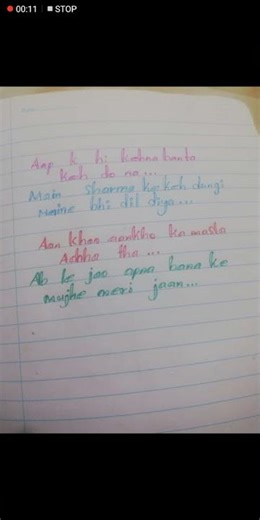 00:11 STOP
Aap k hi kehna banta
Keh do na...
Main sharma ke keh dungi
Maine bhi dil diya...
Aankho ka masla
Achha tha...
Ab le jao apna bana ke
Mujhe meri jaan...